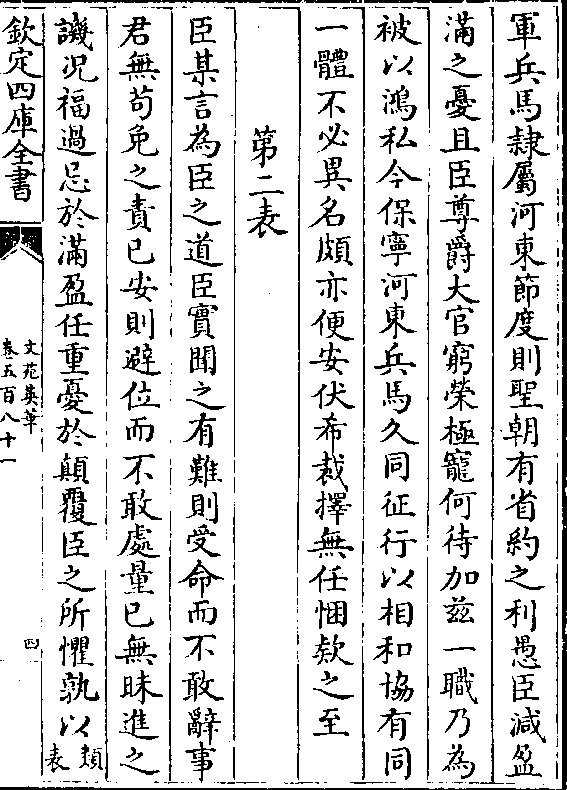 軍兵馬隷屬河東節度則聖朝有省約之利愚臣減盈
滿之憂且臣尊爵大官窮榮極寵何待加兹一職乃為
被以鴻私今保寧河東兵馬久同征行以相和協有同
一體不必異名頗亦便安伏希裁擇無任悃欵之至
第二表
臣某言為臣之道臣實聞之有難則受命而不敢辭事
君無苟免之責已安則避位而不敢處量已無昧進之
譏况福過忌於滿盈任重憂於顛覆臣之所懼孰以類表
欽定四庫全書
文苑英華
卷五百八十一
四